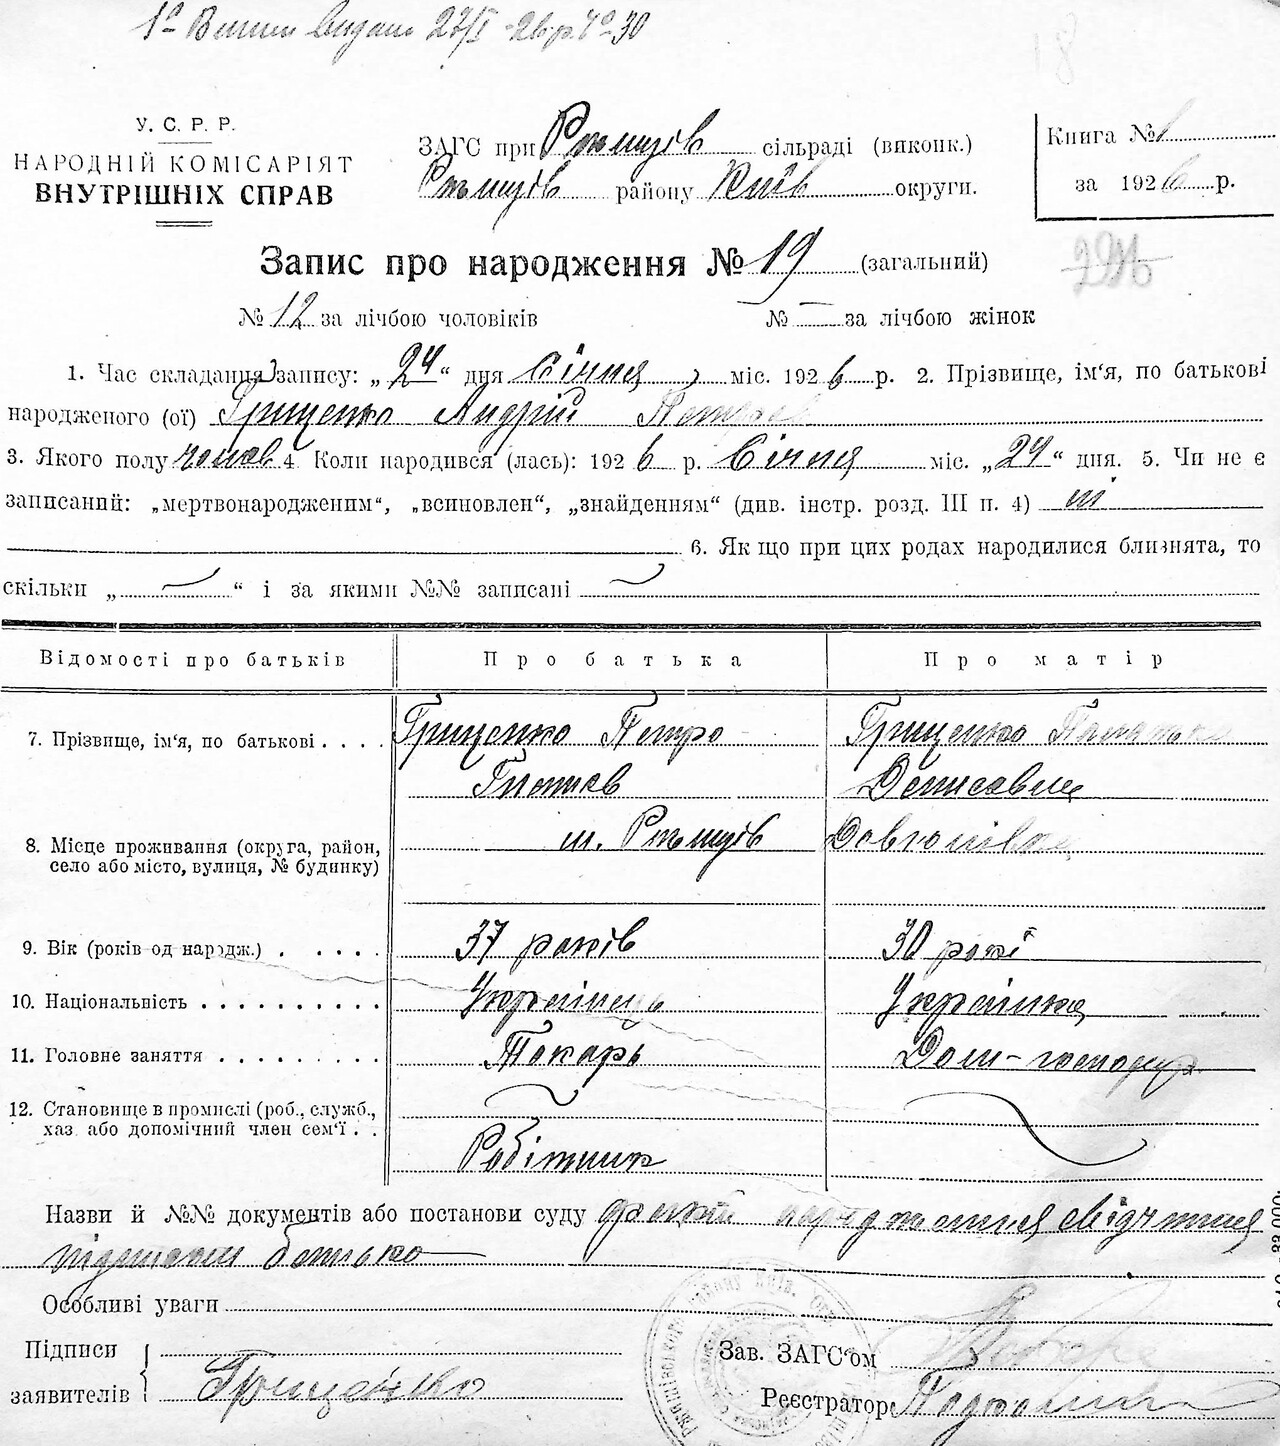 У. С. Р. Р.
НАРОДНІЙ КОМІСАРІЯТ
ВНУТРІШНІХ СПРАВ
ЗАГС при Ржищів сільраді (виконк.)
Ржищів району Київ округи.
Книга № 1
за 1926 р.
Запис про народження № 19 (загальний)
№ 12 за лічбою чоловіків № — за лічбою жінок
1. Час складання запису: „24“ дня Січня міс. 1926 р. 2. Прізвище, ім'я, по батькові
народженого (ої) Грищенко Андрій
3. Якого полу чолов 4. Коли народився (лась): 1926 р. Січня міс. „24“ дня. 5. Чи не є
записаний: „мертвонародженим“, „всиновлен“, „знайденням“ (див. інстр. розд. III п. 4) ні
6. Як що при цих родах народилися близнята, то
скільки „ — “ і за якими №№ записані —
Відомості про батьків Про батька Про матір
7. Прізвище, ім'я, по батькові . . . . Грищенко Петро Грищенко
Гнатов Денисовна
8. Місце проживання (округа, район, м. Ржищів
село або місто, вулиця, № будинку)
9. Вік (років од народж.) . . . . . 37 років 30 рокі
10. Національність . . . . . . . . . . Українець Українка
11. Головне заняття . . . . . . . . . Токарь Дом-господар
12. Становище в промислі (роб., служб.,
хаз. або допомічний член сем'ї . . Робітник
Назви й №№ документів або постанови суду народження
підписом батько
Особливі уваги
Підписи
заявителів Грищенко
Зав. ЗАГС'ом
Реєстратор